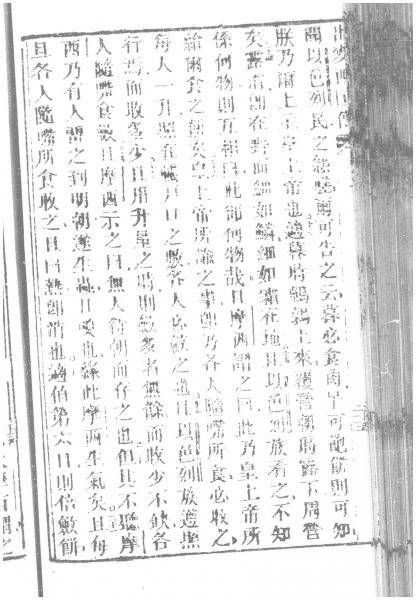 聞以色列民之怨艾爾可告之云暮必食肉早可飽餅則可知
朕乃爾上主皇上帝也適暮時鵪鶉上來覆營朝時露下周營
矣露消卽在野面細如鱗細如霜在地且以色列族看之不知
係何物則互相曰此卽何物哉且摩西謂之曰此乃皇上帝所
給爾食之餅矣皇上帝所諭之事卽乃各人隨嘴所食必收之
每人一升照在帳戶口之數各人必斂之也且以色列族遵照
行焉而收多少且用升量之時則斂多者無餘而收少不缺各
人隨嘴食斂且摩西示之曰無人留朝而存之也但其不聽摩
西乃有人留之到明朝遂生蟲且臭也緣此摩西生氣矣且每
旦各人隨嘴所食收之且日熱卽消也適值第六日則倍斂餅